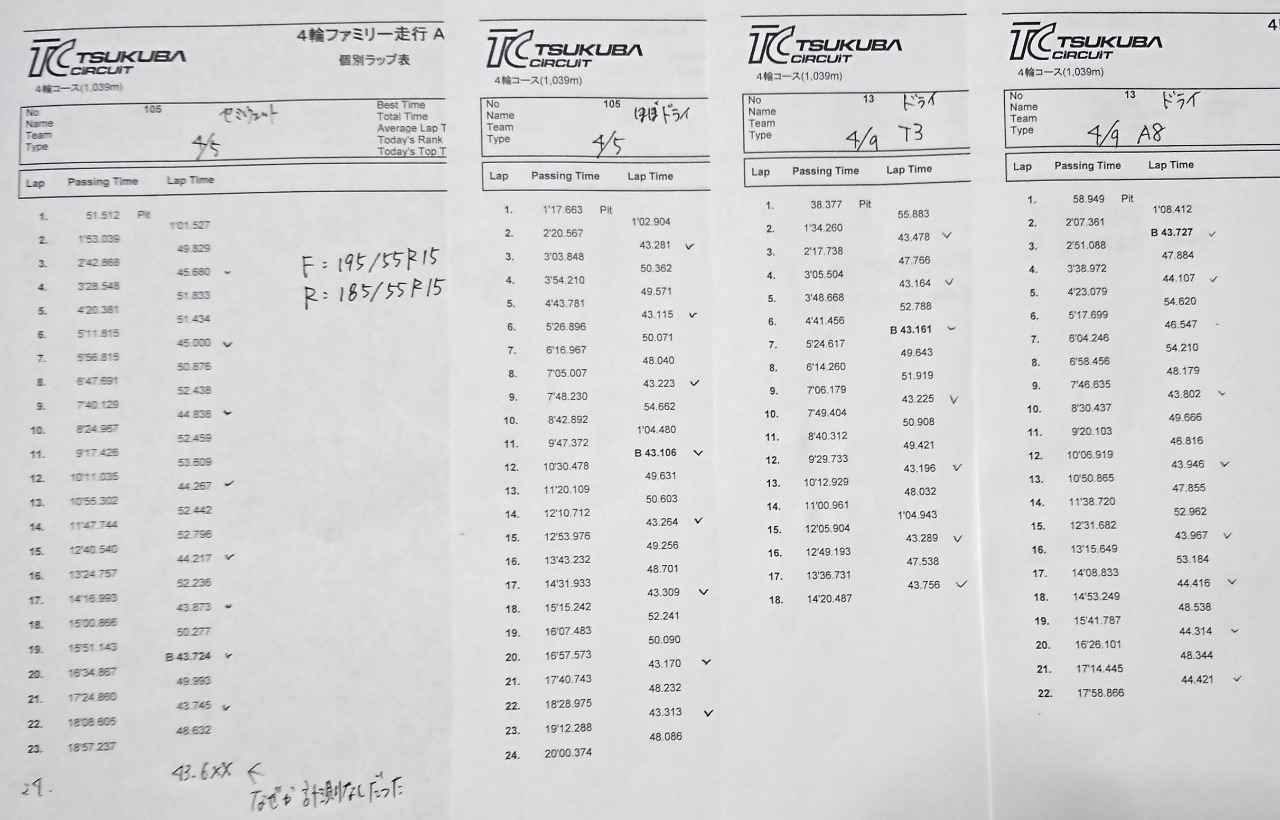 TC TSUKUBA CIRCUIT
4輪ファミリー走行 A
個別ラップ表
4輪コース(1,039m)
No 105 セミウェット Best Time
Name Total Time
Team Average Lap T
Type 4/5 Today's Rank
Today's Top T
Lap Passing Time Lap Time
1. 51.512 Pit
1'01.527
2. 1'53.039
49.829
3. 2'42.868
45.680 ✓
4. 3'28.548
51.833
5. 4'20.381
51.434
6. 5'11.815
45.000 ✓
7. 5'56.815
50.876
8. 6'47.691
52.438
9. 7'40.129
44.838 ✓
10. 8'24.967
52.459
11. 9'17.426
53.609
12. 10'11.035
44.267 ✓
13. 10'55.302
52.442
14. 11'47.744
52.796
15. 12'40.540
44.217 ✓
16. 13'24.757
52.236
17. 14'16.993
43.873 ✓
18. 15'00.866
50.277
19. 15'51.143
B 43.724 ✓
20. 16'34.867
49.993
21. 17'24.860
43.745 ✓
22. 18'08.605
48.632
23. 18'57.237
43.6xx ←
24.
なぜか計測なしだった
F: 195/55R15
R: 185/55R15
TC TSUKUBA CIRCUIT
4輪コース(1,039m)
No 105 ほぼドライ
Name
Team
Type 4/5
Lap Passing Time Lap Time
1. 1'17.663 Pit
1'02.904
2. 2'20.567
43.281 ✓
3. 3'03.848
50.362
4. 3'54.210
49.571
5. 4'43.781
43.115 ✓
6. 5'26.896
50.071
7. 6'16.967
48.040
8. 7'05.007
43.223 ✓
9. 7'48.230
54.662
10. 8'42.892
1'04.480
11. 9'47.372
B 43.106 ✓
12. 10'30.478
49.631
13. 11'20.109
50.603
14. 12'10.712
43.264 ✓
15. 12'53.976
49.256
16. 13'43.232
48.701
17. 14'31.933
43.309 ✓
18. 15'15.242
52.241
19. 16'07.483
50.090
20. 16'57.573
43.170 ✓
21. 17'40.743
48.232
22. 18'28.975
43.313 ✓
23. 19'12.288
48.086
24. 20'00.374
TC TSUKUBA CIRCUIT
4輪コース(1,039m)
No 13 ドライ
Name
Team
Type 4/9 T3
Lap Passing Time Lap Time
1. 38.377 Pit
55.883
2. 1'34.260
43.478 ✓
3. 2'17.738
47.766
4. 3'05.504
43.164 ✓
5. 3'48.668
52.788
6. 4'41.456
B 43.161 ✓
7. 5'24.617
49.643
8. 6'14.260
51.919
9. 7'06.179
43.225 ✓
10. 7'49.404
50.908
11. 8'40.312
49.421
12. 9'29.733
43.196 ✓
13. 10'12.929
48.032
14. 11'00.961
1'04.943
15. 12'05.904
43.289 ✓
16. 12'49.193
47.538
17. 13'36.731
43.756 ✓
18. 14'20.487
4
TC TSUKUBA CIRCUIT
4輪コース(1,039m)
No 13 ドライ
Name
Team
Type 4/9 A8
Lap Passing Time Lap Time
1. 58.949 Pit
1'08.412
2. 2'07.361
B 43.727 ✓
3. 2'51.088
47.884
4. 3'38.972
44.107 ✓
5. 4'23.079
54.620
6. 5'17.699
46.547
7. 6'04.246
54.210
8. 6'58.456
48.179
9. 7'46.635
43.802 ✓
10. 8'30.437
49.666
11. 9'20.103
46.816
12. 10'06.919
43.946 ✓
13. 10'50.865
47.855
14. 11'38.720
52.962
15. 12'31.682
43.967 ✓
16. 13'15.649
53.184
17. 14'08.833
44.416 ✓
18. 14'53.249
48.538
19. 15'41.787
44.314 ✓
20. 16'26.101
48.344
21. 17'14.445
44.421 ✓
22. 17'58.866